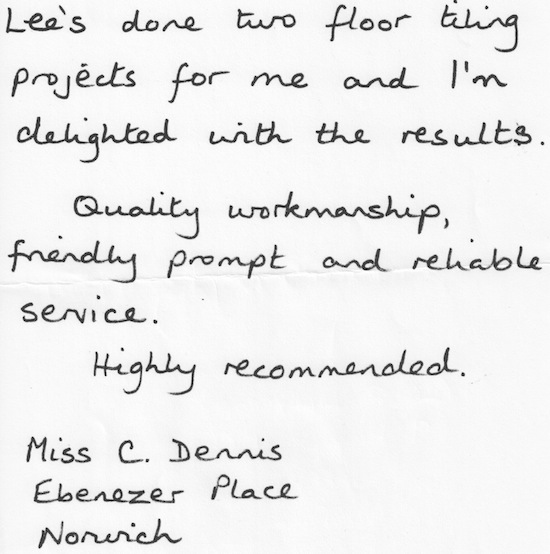 Lee's done two floor tiling
projects for me and I'm
delighted with the results.
Quality workmanship,
friendly prompt and reliable
service.
Highly recommended.
Miss C. Dennis
Ebenezer Place
Norwich